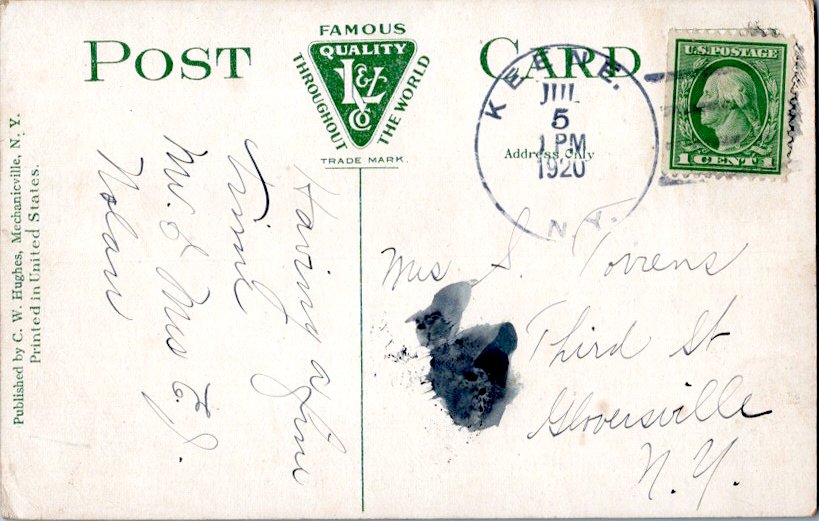 POST CARD
FAMOUS
QUALITY
K&L
CO
THROUGHOUT THE WORLD
TRADE MARK.
KEENE.
JUL
5
1 PM
1920
N.Y.
Address Only
U.S. POSTAGE
1 CENT 1
Published by C. W. Hughes, Mechanicville, N. Y.
Printed in United States.
Having a fine
time
Mr. & Mrs E. J.
Nolan
Mrs S. Torrens
Third St
Gloversville
N.Y.